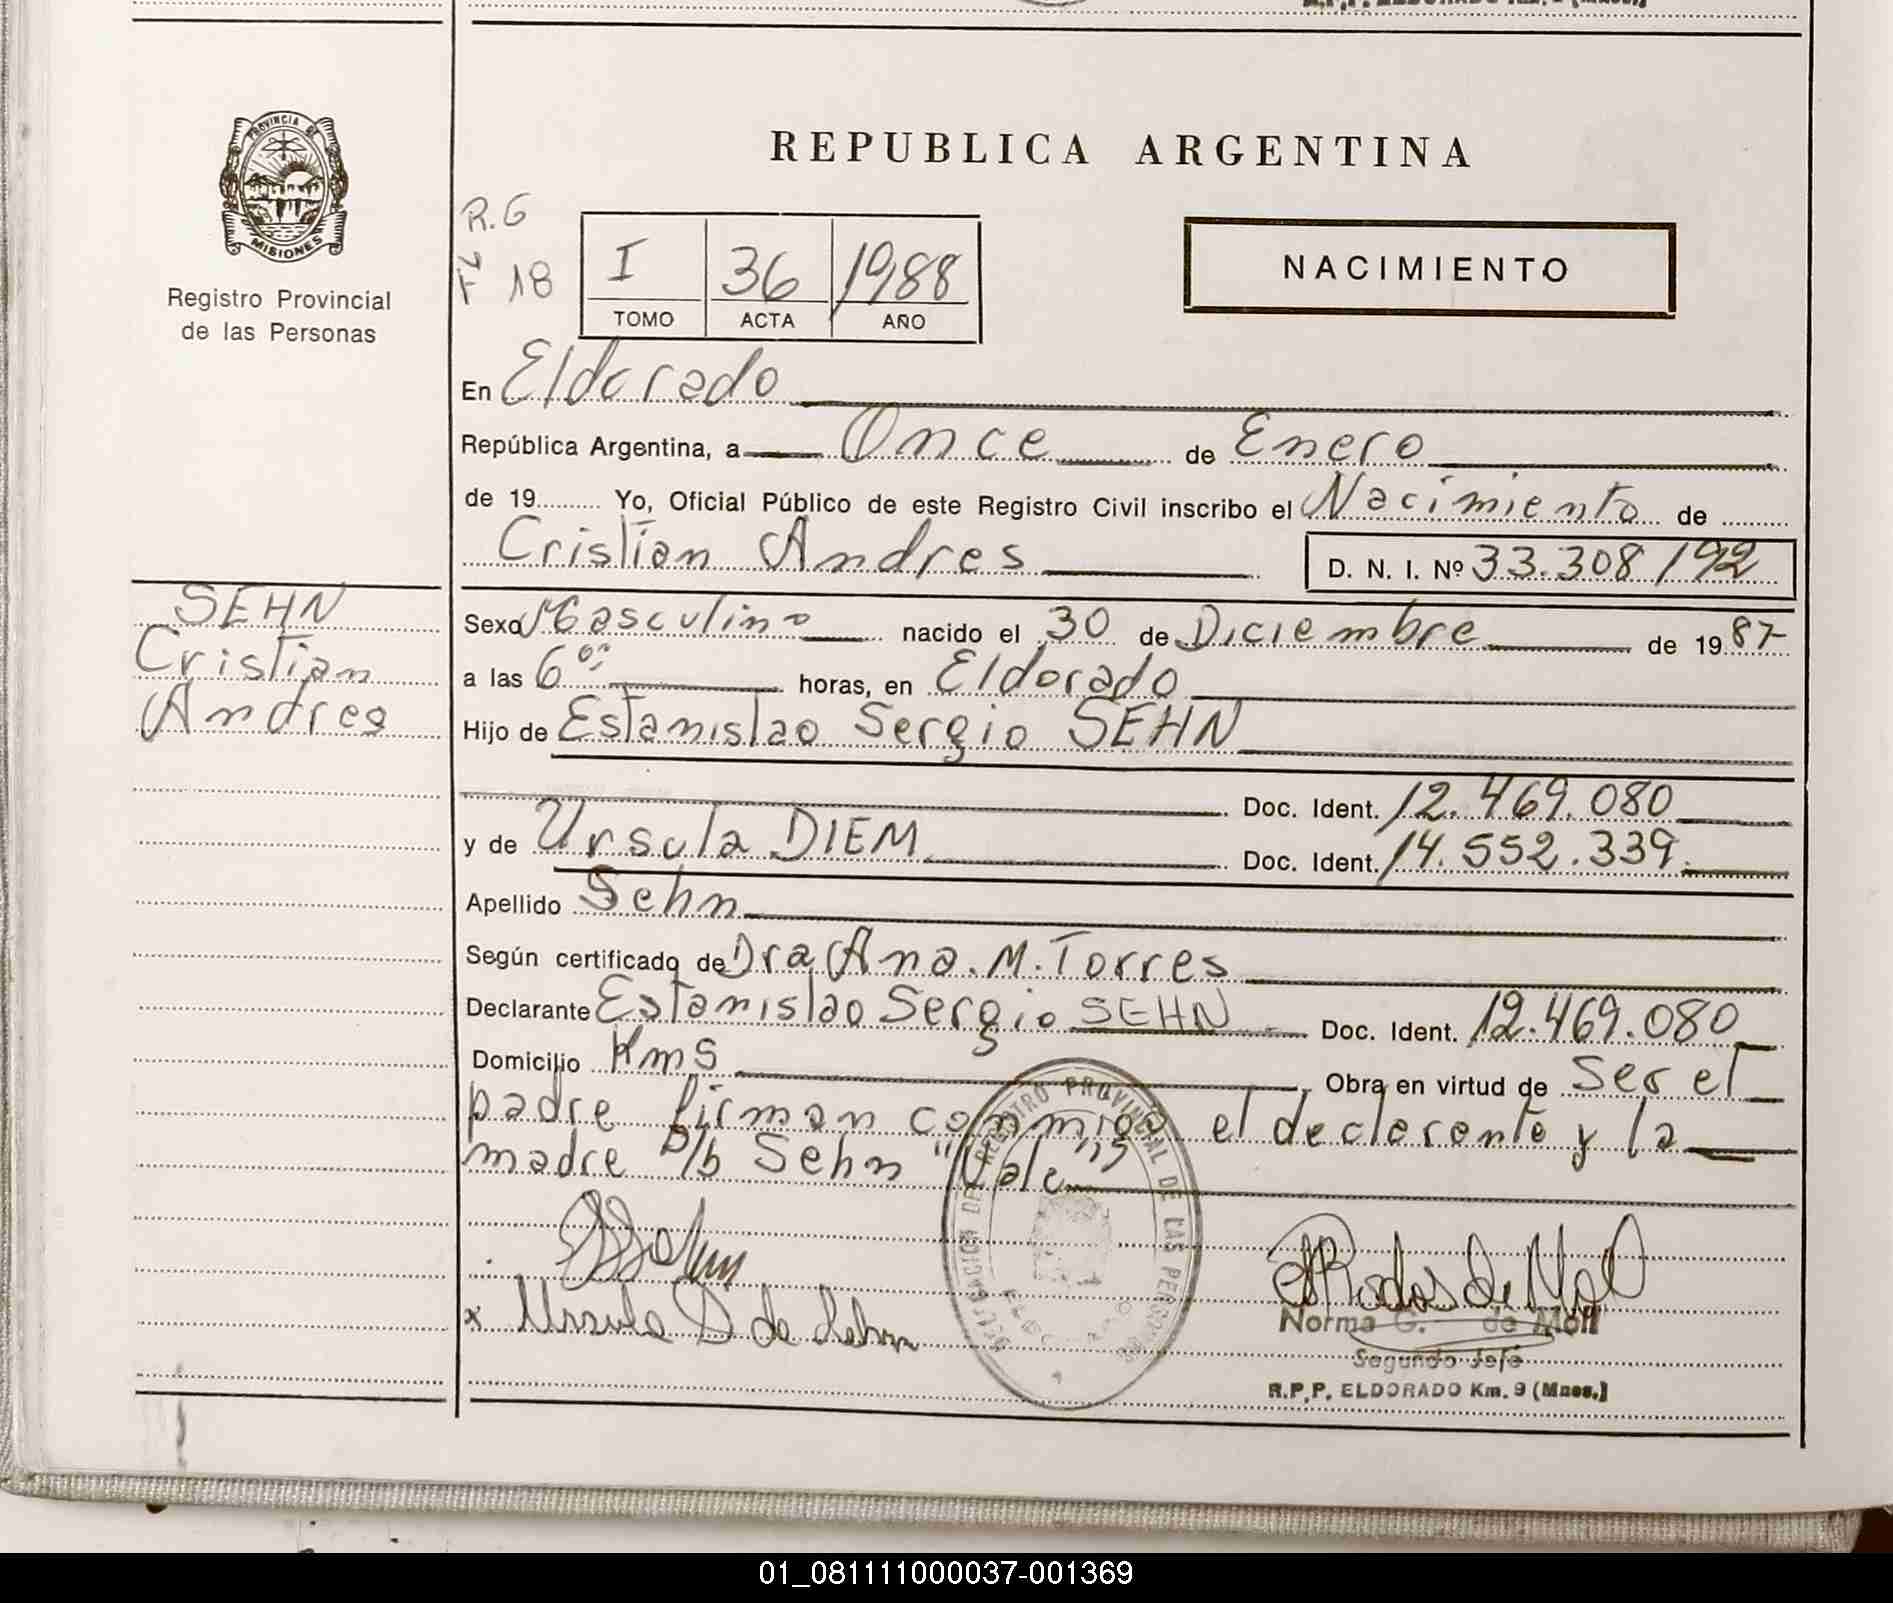 PROVINCIA DE
MISIONES
Registro Provincial
de las Personas
SEHN
Cristian
Andres
REPUBLICA ARGENTINA
R.G
F 18
I 36 1988
TOMO ACTA AÑO
NACIMIENTO
En Eldorado
República Argentina, a Once de Enero
de 19......... Yo, Oficial Público de este Registro Civil inscribo el Nacimiento de .........
Cristian Andres
D. N. I. Nº 33.308/192
Sexo Masculino nacido el 30 de Diciembre de 1987
a las 6 horas, en Eldorado
Hijo de Estanislao Sergio SEHN
Doc. Ident. 12.469.080
y de Ursula DIEM Doc. Ident. 14.552.339.
Apellido Sehn
Según certificado de Dra Ana. M. Torres
Declarante Estanislao Sergio SEHN Doc. Ident. 12.469.080
Domicilio Obra en virtud de Ser el
padre firman conmigo el declarante y la
madre S/b Sehn "Vale"
REGISTRO PROVINCIAL DE LAS PERSONAS
x Ursula D de Sehn
Norma G. de Moll
Segundo Jefe
R.P.P. ELDORADO Km. 9 (Mnes.)
01_081111000037-001369